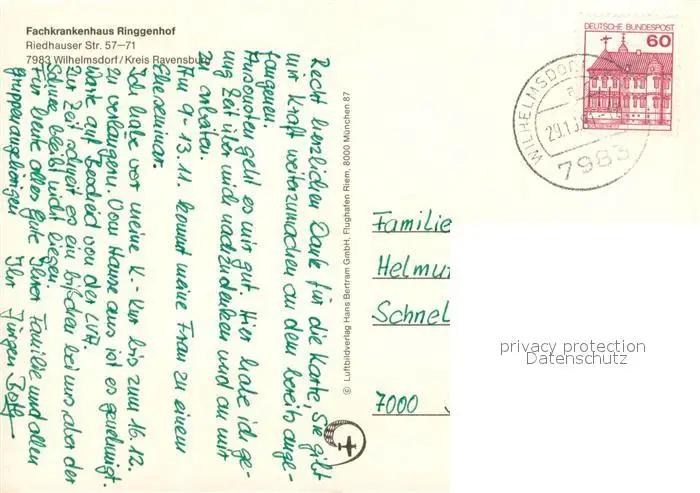 Fachkrankenhaus Ringgenhof
Riedhauser Str. 57–71
7983 Wilhelmsdorf/Kreis Ravensburg
DEUTSCHE BUNDESPOST
60
WILHELMSDORF
29.1
7983
Recht herzlichen Dank für die Karte. Sie gibt
mir Kraft weiterzumachen an dem bereits ange-
fangenen.
Ansonsten geht es mir gut. Hier habe ich ge-
nug Zeit über mich nachzudenken und an mir
zu arbeiten.
Am 9.-13.11. kommt meine Frau zu einem
Eheseminar.
Ich habe vor meine K.-Kur bis zum 16.12.
zu verlängern. Vom Hause aus ist es genehmigt.
Warte auf Bescheid von der LVA.
Zur Zeit schneit es ein bißchen bei uns, aber der
Schnee bleibt nicht liegen.
Für heute alles Gute Ihrer Familie und allen
Gruppenangehörigen
Ihr Jürgen
© Luftbildverlag Hans Bertram GmbH, Flughafen Riem, 8000 München 87
Familie
Helmu
Schnel
7000
privacy protection
Datenschutz